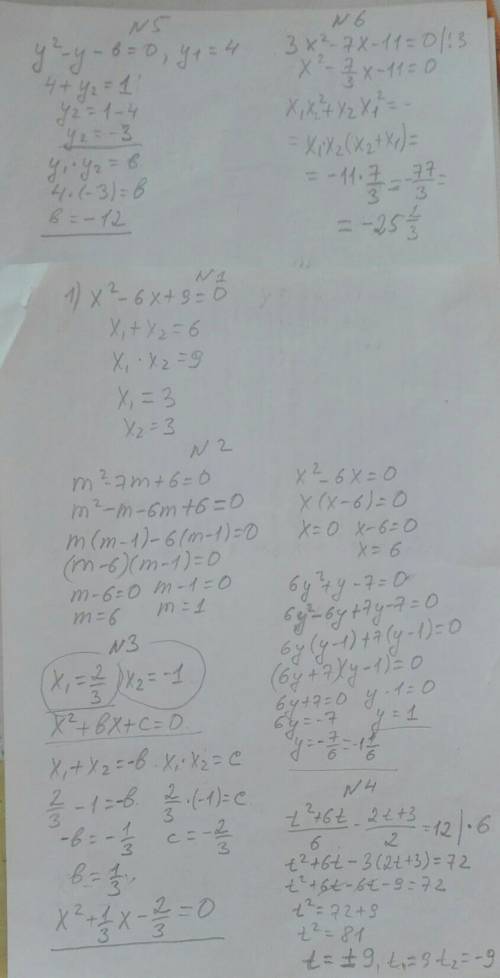 N5
y²-y-в=0, y₁=4
4+y₂=1
y₂=1-4
y₂=-3
y₁·y₂=в
4·(-3)=в
в=-12
N6
3x²-7x-11=0|:3
x²-7/3x-11=0
x₁x₂²+x₂x₁²=
=x₁x₂(x₂+x₁)=
=-11·7/3=-77/3=
=-25 2/3
N1
1) x²-6x+9=0
x₁+x₂=6
x₁·x₂=9
x₁=3
x₂=3
N2
m²-7m+6=0
m²-m-6m+6=0
m(m-1)-6(m-1)=0
(m-6)(m-1)=0
m-6=0 m-1=0
m=6 m=1
x²-6x=0
x(x-6)=0
x=0 x-6=0
x=6
6y²+y-7=0
6y²-6y+7y-7=0
6y(y-1)+7(y-1)=0
(6y+7)(y-1)=0
6y+7=0 y-1=0
6y=-7 y=1
y=-7/6=-1 1/6
N3
x₁=2/3, x₂=-1
x²+вx+c=0
x₁+x₂=-в x₁·x₂=c
2/3-1=-в 2/3·(-1)=c
-в=-1/3 c=-2/3
в=1/3
x²+1/3x-2/3=0
N4
t²+6t/6-2t+3/2=12|·6
t²+6t-3(2t+3)=72
t²+6t-6t-9=72
t²=72+9
t²=81
t=±9, t₁=9 t₂=-9